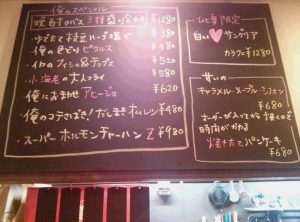 俺のスペシャル
晩酌タパス3種盛り合わせ ¥1280
・ゆでたて枝豆ハーブ塩で ¥380
・俺の色どりピクルス ¥480
・イカのフィッシュ&チップス ¥520
・小海老の大人フライ ¥580
・俺におまかせアヒージョ ¥620
俺のコテさばき!だしまきオムレツ ¥480
・スーパーホルモンチャーハンZ ¥980
限定
白い♥サングリア
カラフェ ¥1280
甘いの
キャラメル・メープル・シフォン
¥680
オーダーが入ってから焼くので
時間がかかる
焼きたてパンケーキ
¥680